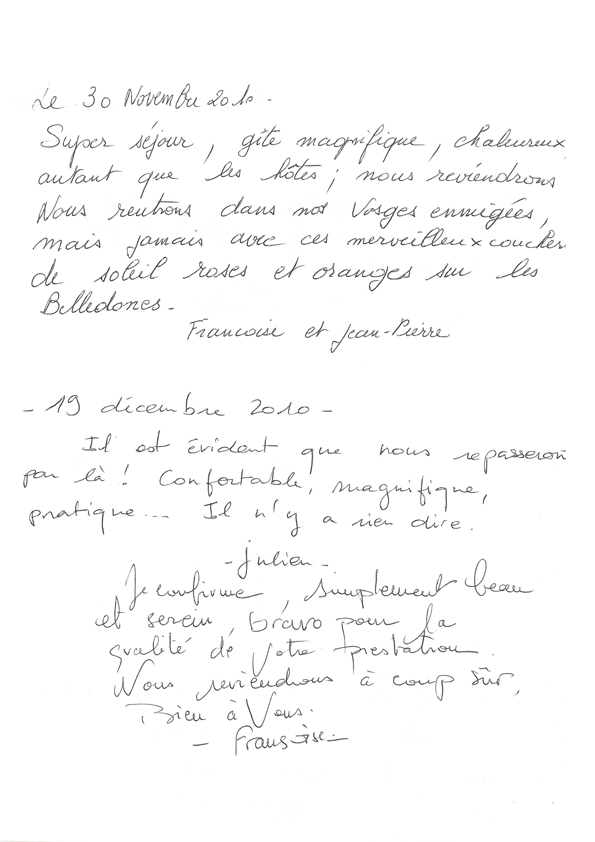 Le 30 Novembre 2010 -
Super séjour, gîte magnifique, chaleureux
autant que les hôtes; nous reviendrons
Nous rentrons dans nos Vosges enneigées,
mais jamais avec ces merveilleux coucher
de soleil roses et oranges sur les
Belledones -
Francoise et Jean-Pierre
- 19 décembre 2010 -
Il est évident que nous repasseron
par là ! Confortable, magnifique,
pratique... Il n'y a rien dire.
- Julien -
Je confirme, simplement beau
et serein, bravo pour la
qualité de votre prestation.
Nous reviendrons à coup sûr,
Bien à Vous.
- Françoise -